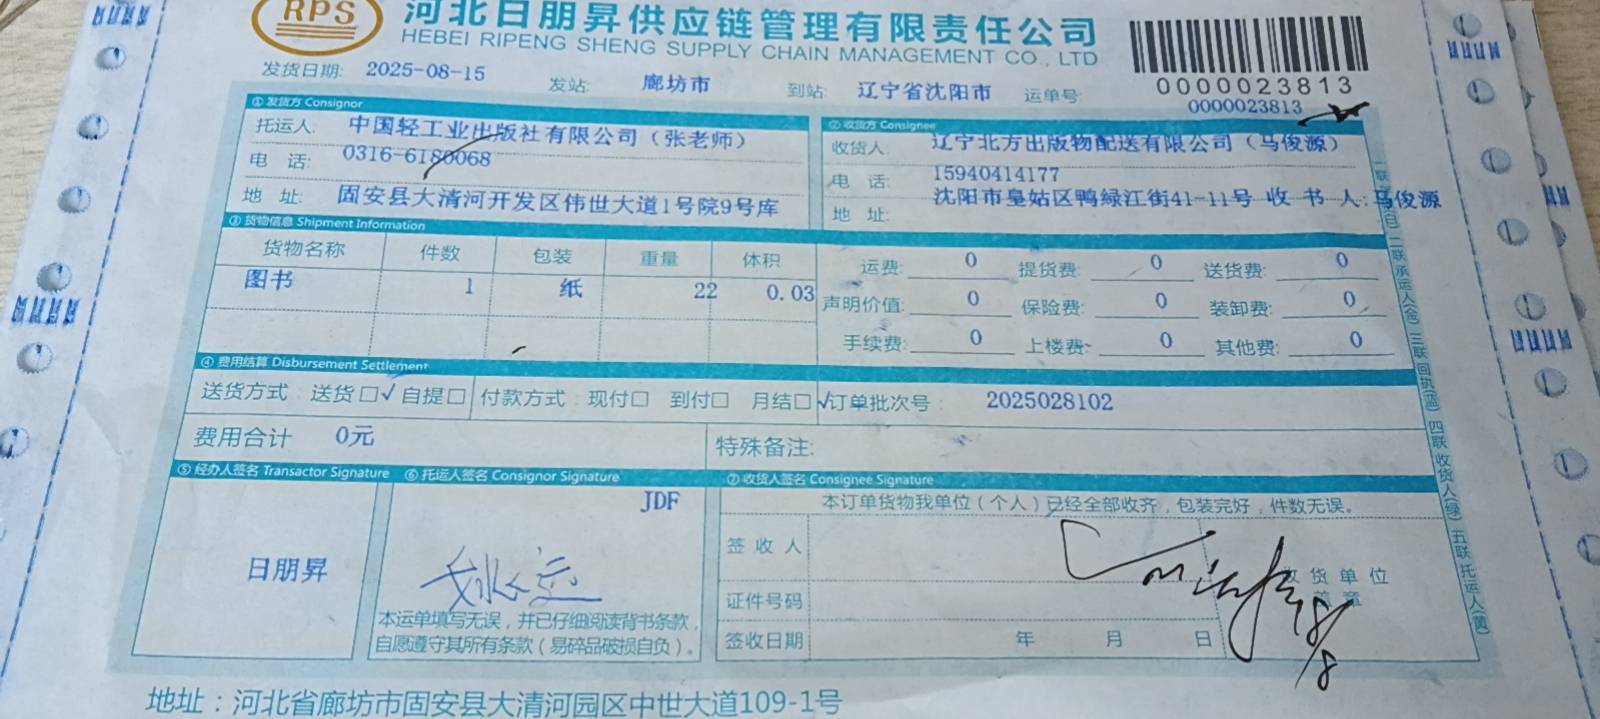 RPS
河北日朋昇供应链管理有限责任公司
HEBEI RIPENG SHENG SUPPLY CHAIN MANAGEMENT CO., LTD
0000023813
发货日期: 2025-08-15 发站: 廊坊市 到站: 辽宁省沈阳市 运单号: 0000023813
① 发货方 Consignor ② 收货方 Consignee
托运人: 中国轻工业出版社有限公司（张老师） 收货人: 辽宁北方出版物配送有限公司（马俊源）
电 话: 0316-6180068 电 话: 15940414177
地 址: 固安县大清河开发区伟世大道1号院9号库 地 址: 沈阳市皇姑区鸭绿江街41-11号 收 书 人:马俊源
③ 货物信息 Shipment Information
货物名称 件数 包装 重量 体积 运费: 0 提货费: 0 送货费: 0
图书 1 纸 22 0.03 声明价值: 0 保险费: 0 装卸费: 0
手续费: 0 上楼费: 0 其他费: 0
④ 费用结算 Disbursement Settlement
送货方式 送货□√ 自提□ 付款方式: 现付□ 到付□ 月结□√ 订单批次号: 2025028102
费用合计 0元 特殊备注:
⑤ 经办人签名 Transactor Signature ⑥ 托运人签名 Consignor Signature ⑦ 收货人签名 Consignee Signature
JDF 本订单货物我单位（个人）已经全部收齐，包装完好，件数无误。
签 收 人
日朋昇 收 货 单 位
盖 章
证件号码
本运单填写无误，并已仔细阅读背书条款，
自愿遵守其所有条款（易碎品破损自负）。
签收日期 年 月 日
18/8
二联承运人(金) 三联回执(蓝) 四联收货人(绿) 五联托运人(黄)
地址：河北省廊坊市固安县大清河园区中世大道109-1号